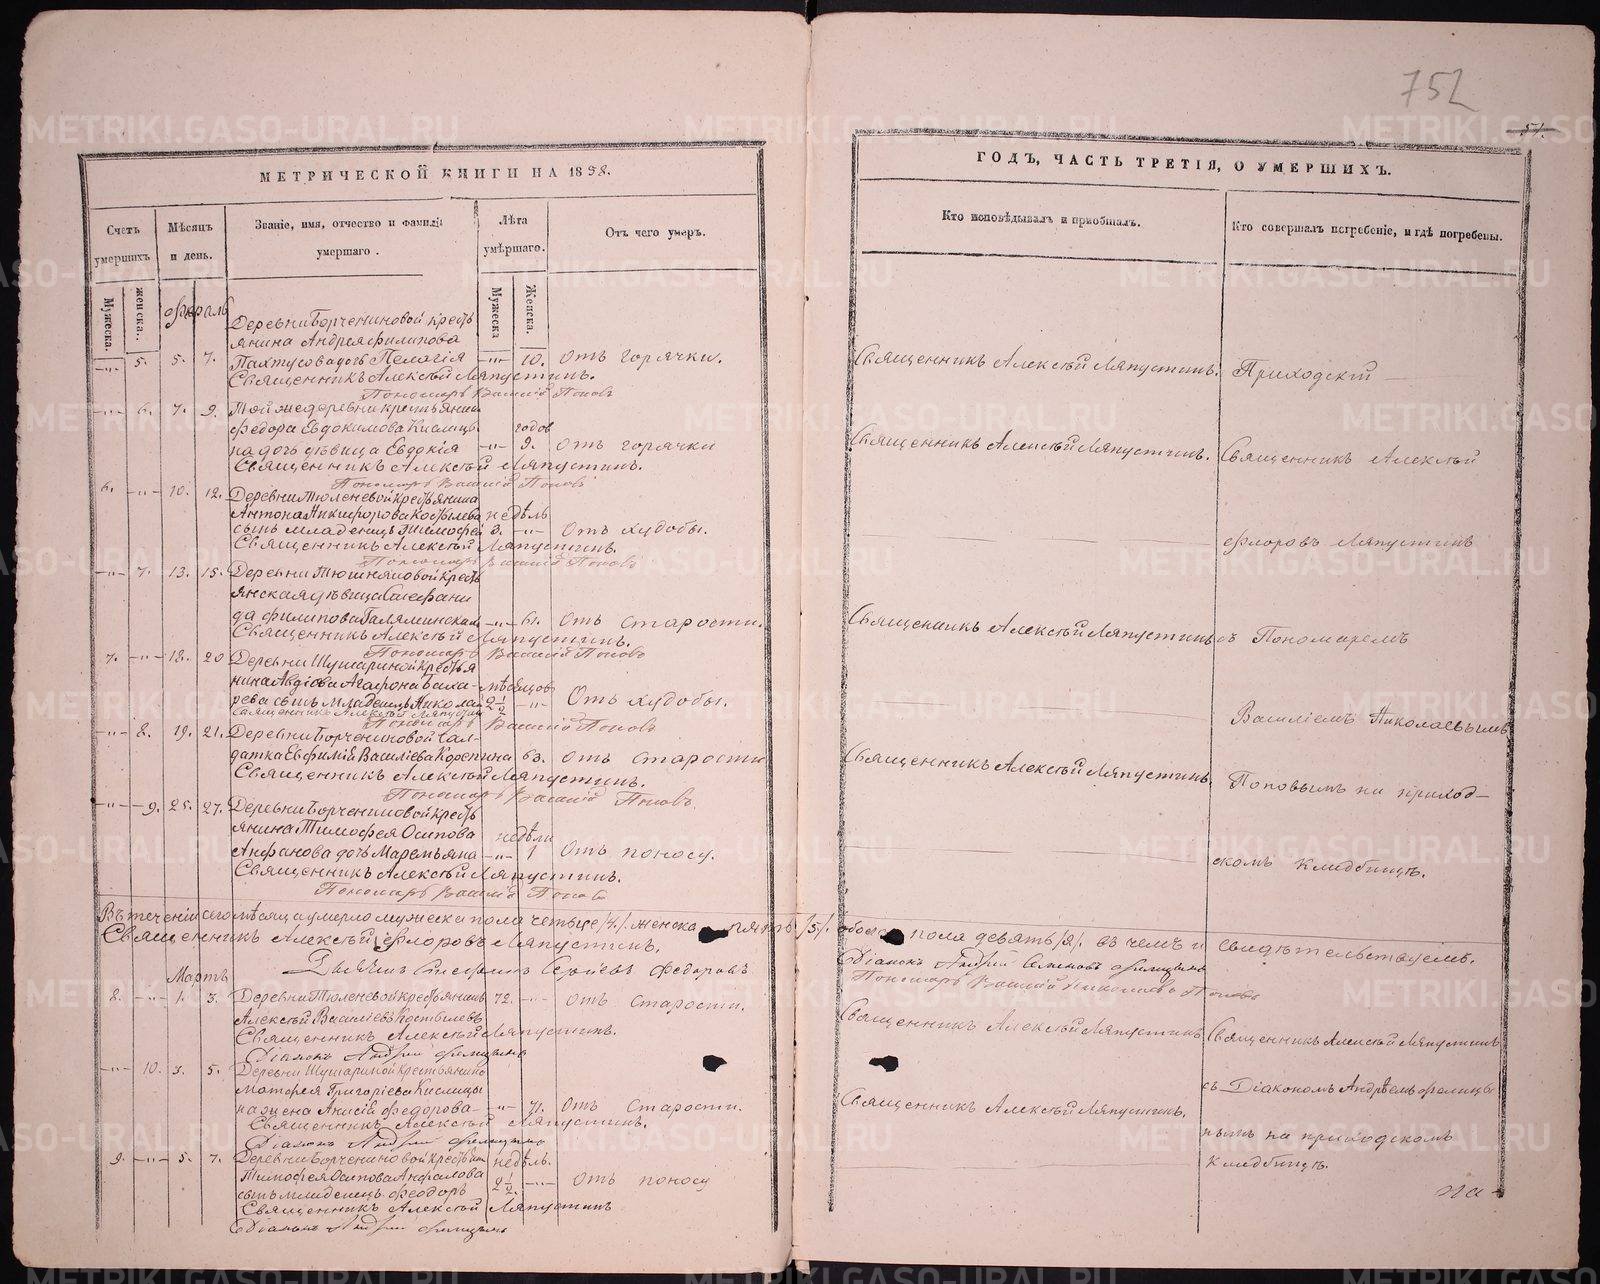 752
51.
МЕТРИЧЕСКОЙ КНИГИ НА 1898.
Счетъ умершихъ
Мѣсяцъ и день.
Званіе, имя, отчество и фамилія умершаго.
Лѣта умѣршаго.
Отъ чего умеръ.
Мужеска.
женска.
Мужеска
Женска.
Февраль
Деревни Борчениновой кресть
янина Андрея Филипова
5. 5. 7. Пахтусова дочь Пелагія 10. Отъ горячки.
Священникъ Алексѣй Ляпустинъ.
Пономарь Василій Поповъ
6. 7. 9. Той же деревни крестьянина
Федора Евдокимова Кислицы годов
на дочь дѣвица Евдокія 9. Отъ горячки
Священникъ Алексѣй Ляпустинъ.
Пономарь Василій Поповъ
6. 10. 12. Деревни Тюленевой крестьянина
Антона Никифорова Костылева недѣль
сынъ младенецъ Тимофей 3. Отъ худобы.
Священникъ Алексѣй Ляпустинъ.
Пономарь Василій Поповъ
7. 13. 15. Деревни кресть
янская дѣвица Стефани
да Филипова 61. Отъ старости.
Священникъ Алексѣй Ляпустинъ.
Пономарь Василій Поповъ
7. 18. 20 Деревни Шушариной крестья
нина Авдіова Агафона мѣсяцов
сынъ младенецъ Николай 2½ Отъ худобы.
Священникъ Алексѣй Ляпустинъ
Пономарь Василій Поповъ
8. 19. 21. Деревни Борчениновой сол-
датка Евфимія Василіева 63. Отъ старости
Священникъ Алексѣй Ляпустинъ.
Пономарь Василій Поповъ
9. 25. 27. Деревни Борчениновой кресть
янина Тимофея Осипова недѣли
Анфалова дочь Маремьяна 1 Отъ поносу.
Священникъ Алексѣй Ляпустинъ.
Пономарь Василій Поповъ
Въ теченіи сего мѣсяца умерло мужеска пола четыре /4/. женска пять /5/. обоего пола девять /9/. въ чемъ и свидѣтельствуемъ.
Священникъ Алексѣй Флоровъ Ляпустинъ.
Федоровъ
Мартъ
8. 1. 3. Деревни Тюленевой крестьянинъ 72. Отъ старости.
Алексѣй Василіевъ Костылевъ
Священникъ Алексѣй Ляпустинъ.
Діаконъ Андрей
10. 3. 5. Деревни Шушариной крестьянина
Матфея Григоріева Кислицы
на жена Анисія Федорова 71. Отъ старости.
Священникъ Алексѣй Ляпустинъ.
Діаконъ Андрей
9. 5. 7. Деревни Борчениновой крестьян недѣль.
Тимофея Осипова Анфалова 2½. Отъ поносу
сынъ младенецъ Феодоръ
Священникъ Алексѣй Ляпустинъ
Діаконъ Андрей
ГОДЪ, ЧАСТЬ ТРЕТІЯ, О УМЕРШИХЪ.
Кто исповѣдывалъ и пріобщалъ.
Кто совершалъ погребеніе, и гдѣ погребены.
Священникъ Алексѣй Ляпустинъ. Приходскій
Священникъ Алексѣй Ляпустинъ. Священникъ Алексѣй
Флоровъ Ляпустинъ
Священникъ Алексѣй Ляпустинъ съ Пономаремъ
Василіемъ Николаевымъ
Священникъ Алексѣй Ляпустинъ. Поповымъ на приход-
скомъ кладбищѣ.
Діаконъ Андрей Семеновъ
Пономарь Василій Николаевъ Поповъ
Священникъ Алексѣй Ляпустинъ Священникъ Алексѣй Ляпустинъ
съ Діакономъ Андреемъ Фелицы
Священникъ Алексѣй Ляпустинъ. нымъ на приходскомъ
кладбищѣ.
На